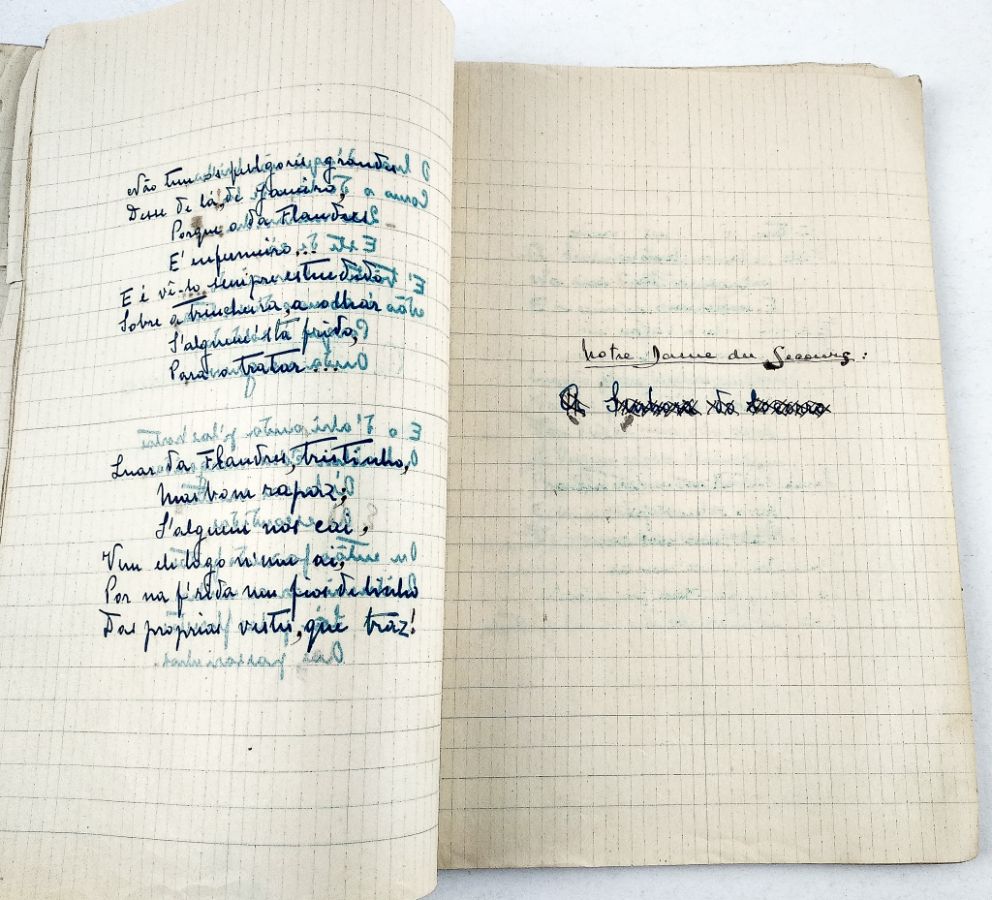 Não tem os fulgores grandes
Desse de lá, de Janeiro,
Porque o da Flandres
E' enfermeiro...
E é vê-lo sempre estendido
Sobre a trincheira, a olhar
S'alguem está frido,
Para o tratar...
Luar da Flandres, tristinho,
Mas bom rapaz;
S'alguem nos cai,
Vem ele logo n'um ai,
Por na f'rida um fio de linho
Das proprias vestes, que traz!
Notre Dame du Secours:
A Senhora do Socorro